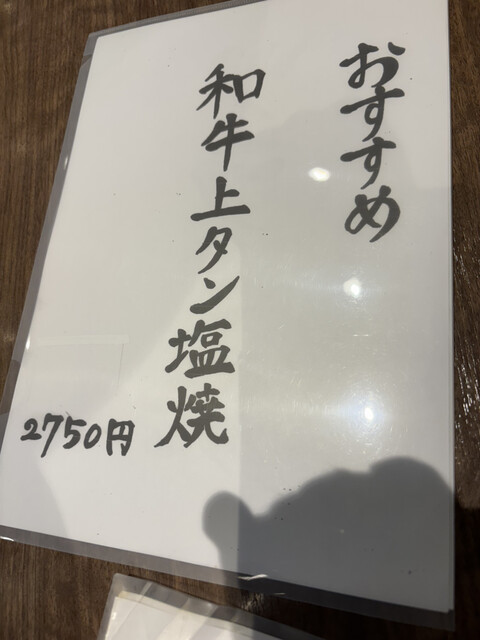 おすすめ
和牛上タン塩焼
2750円